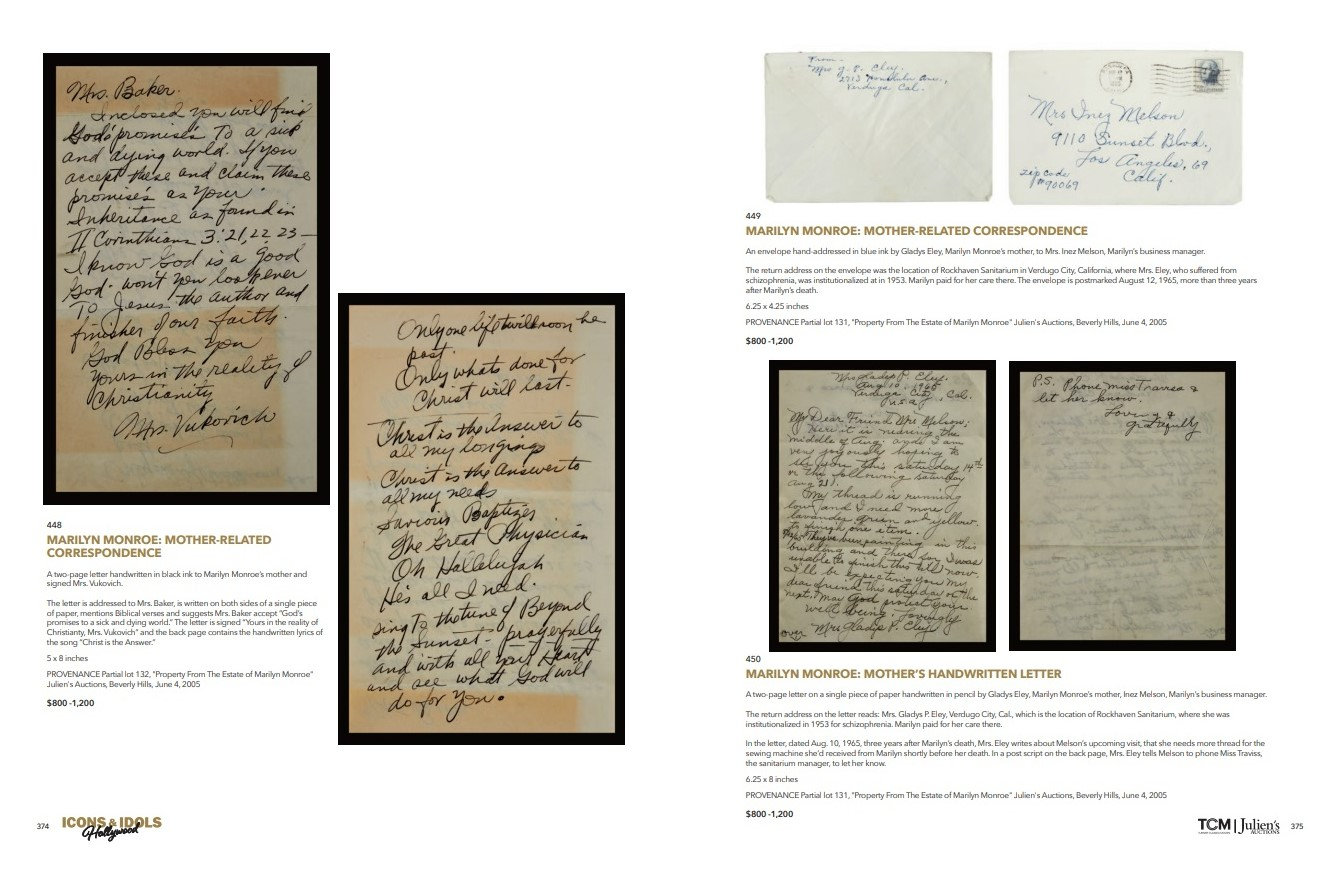 Mrs. Baker.
Inclosed you will find
God's promise's To a sick
and dying world. If you
accept these and claim these
promise's as your
Inheritance as found in
II Corinthians 3:21,22 23 —
I know God is a good
God - won't you look ever
To Jesus the author and
finisher of our faith.
God Bless you
yours in the reality of
Christianity
Mrs. Vukovich
448
MARILYN MONROE: MOTHER-RELATED
CORRESPONDENCE
A two-page letter handwritten in black ink to Marilyn Monroe's mother and
signed Mrs. Vukovich.
The letter is addressed to Mrs. Baker, is written on both sides of a single piece
of paper, mentions Biblical verses and suggests Mrs. Baker accept "God's
promises to a sick and dying world." The letter is signed "Yours in the reality of
Christianty, Mrs. Vukovich" and the back page contains the handwritten lyrics of
the song "Christ is the Answer."
5 x 8 inches
PROVENANCE Partial lot 132, "Property From The Estate of Marilyn Monroe"
Julien's Auctions, Beverly Hills, June 4, 2005
$800 -1,200
Only one life twill soon be
past.
Only whats done for
Christ will last-
Christ is the Answer to
all my longings
Christ is the Answer to
all my needs
Saviour, Baptizes
The Great Physician
Oh Hallelujah
He's all I need.
sing To the tune of Beyond
the Sunset - prayerfully
and with all your Heart
and see what God will
do for you.
374 ICONS & IDOLS
Hollywood
From-
Mrs G. P. Eley.
2713 Honolulu Ave.,
Verdugo Cal.
Mrs Inez Melson
9110 Sunset Blvd.,
Los Angeles, 69
Calif.
zip code
90069
449
MARILYN MONROE: MOTHER-RELATED CORRESPONDENCE
An envelope hand-addressed in blue ink by Gladys Eley, Marilyn Monroe's mother, to Mrs. Inez Melson, Marilyn's business manager.
The return address on the envelope was the location of Rockhaven Sanitarium in Verdugo City, California, where Mrs. Eley, who suffered from
schizophrenia, was institutionalized at in 1953. Marilyn paid for her care there. The envelope is postmarked August 12, 1965, more than three years
after Marilyn's death.
6.25 x 4.25 inches
PROVENANCE Partial lot 131, "Property From The Estate of Marilyn Monroe" Julien's Auctions, Beverly Hills, June 4, 2005
$800 -1,200
Mrs Gladys P. Eley.
Aug 10, 1965
Verdugo City, Cal.
U.S.A.
My Dear Friend Mrs Melson;
Here it is nearing the
middle of Aug; and I am
very joyously hoping to
see you this saturday 14th
or the following saturday
Aug 21).
My thread is running
low and I need more
lavander green and yellow.
to finish one item.
They've been painting in this
building and there for I was
unable to finish this till now.
I'll be expecting you my
dear friend this saturday or the
next. May God protect your
well being. Lovingly
Mrs Gladys P. Eley
over
P.S. Phone miss Traviss &
let her know.
Love
gratefully
450
MARILYN MONROE: MOTHER'S HANDWRITTEN LETTER
A two-page letter on a single piece of paper handwritten in pencil by Gladys Eley, Marilyn Monroe's mother, Inez Melson, Marilyn's business manager.
The return address on the letter reads: Mrs. Gladys P. Eley, Verdugo City, Cal., which is the location of Rockhaven Sanitarium, where she was
institutionalized in 1953 for schizophrenia. Marilyn paid for her care there.
In the letter, dated Aug. 10, 1965, three years after Marilyn's death, Mrs. Eley writes about Melson's upcoming visit, that she needs more thread for the
sewing machine she'd received from Marilyn shortly before her death. In a post script on the back page, Mrs. Eley tells Melson to phone Miss Traviss,
the sanitarium manager, to let her know.
6.25 x 8 inches
PROVENANCE Partial lot 131, "Property From The Estate of Marilyn Monroe" Julien's Auctions, Beverly Hills, June 4, 2005
$800 -1,200
TCM | Julien's
AUCTIONS 375